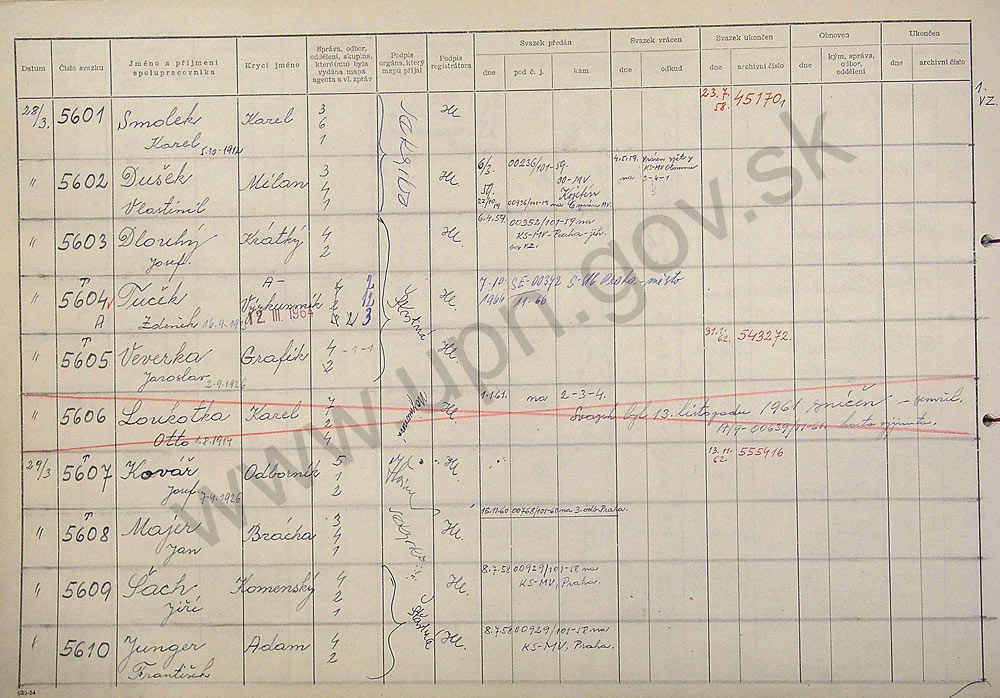 Datum
Číslo svazku
Jméno a příjmení
spolupracovníka
Krycí jméno
Správa, odbor,
oddělení, skupina,
které(mu) byla
vydána mapa
agenta a vl. zpráv
Podpis
orgána, který
mapu přijal
Podpis
registrátora
Svazek předán
dne
pod č. j.
kam
Svazek vrácen
dne
odkud
Svazek ukončen
dne
archivní číslo
Obnoven
dne
kým, správa,
odbor,
oddělení
Ukončen
dne
archivní číslo
28/3. 5601 Smolek Karel 3 He 23.7. 45170
Karel 5.10.1912 6 58.
1
1.
VZ.
" 5602 Dušek Milan 3 He 6/3. 00236/101-59. 4.5.59.
Vlastimil 4 59. 00-MV KS-MV Olomouc
1 Kojetín na 2-4-1
" 5603 Dlouhý Krátký 4 He 6.4.59. 00352/101-59 na
Josef. 2 KS-MV-Praha-
" T A-
5604 Tuček Výzkumník 4 2 He. 7.10. SE-00342
A Zdeněk 16.9. 12 III. 1964 2 3 1966 11-66 město
Šťastná
" 5605 Veverka Grafik 4-1-1 He. 31.1. 543272.
T Jaroslav 2.9.1926 2 62.
" 5606 Loukotka Karel 7 He. 1.1.61. na 2-3-4.
Otto 1.8.1914 2 Svazek byl 13. listopadu 1961 zničen - zemřel.
4 A/4-00639/11-61.
29/3 T
5607 Kovář Odborník 5 He 13.11. 555416
Josef 7.4.1926 1 62.
2
" T
5608 Majer Brácha 3 He. 15.11.60 00768/101-60 na 3. odb. Praha.
Jan 4
1
" 5609 Šach Komenský 4 He. 8.7.58 00929/101-58 na
Jiří 2 KS-MV, Praha.
1
Šťastná
" 5610 Junger Adam 4 He. 8.7.58 00929/101-58 na
František 2 KS-MV, Praha.
www.upn.gov.sk